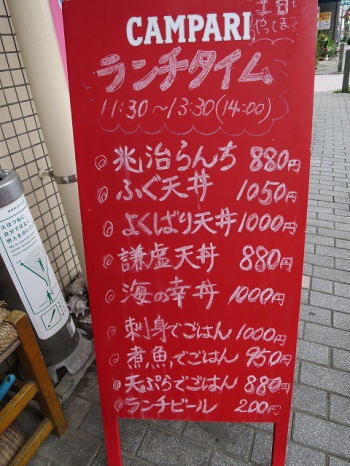 CAMPARI
土日
やってます
ランチタイム
11:30～13:30(14:00)
兆治らんち 880円
ふぐ天丼 1050円
よくばり天丼 1000円
謙虚天丼 880円
海の幸丼 1000円
刺身でごはん 1000円
煮魚でごはん 950円
天ぷらでごはん 880円
ランチビール 200円